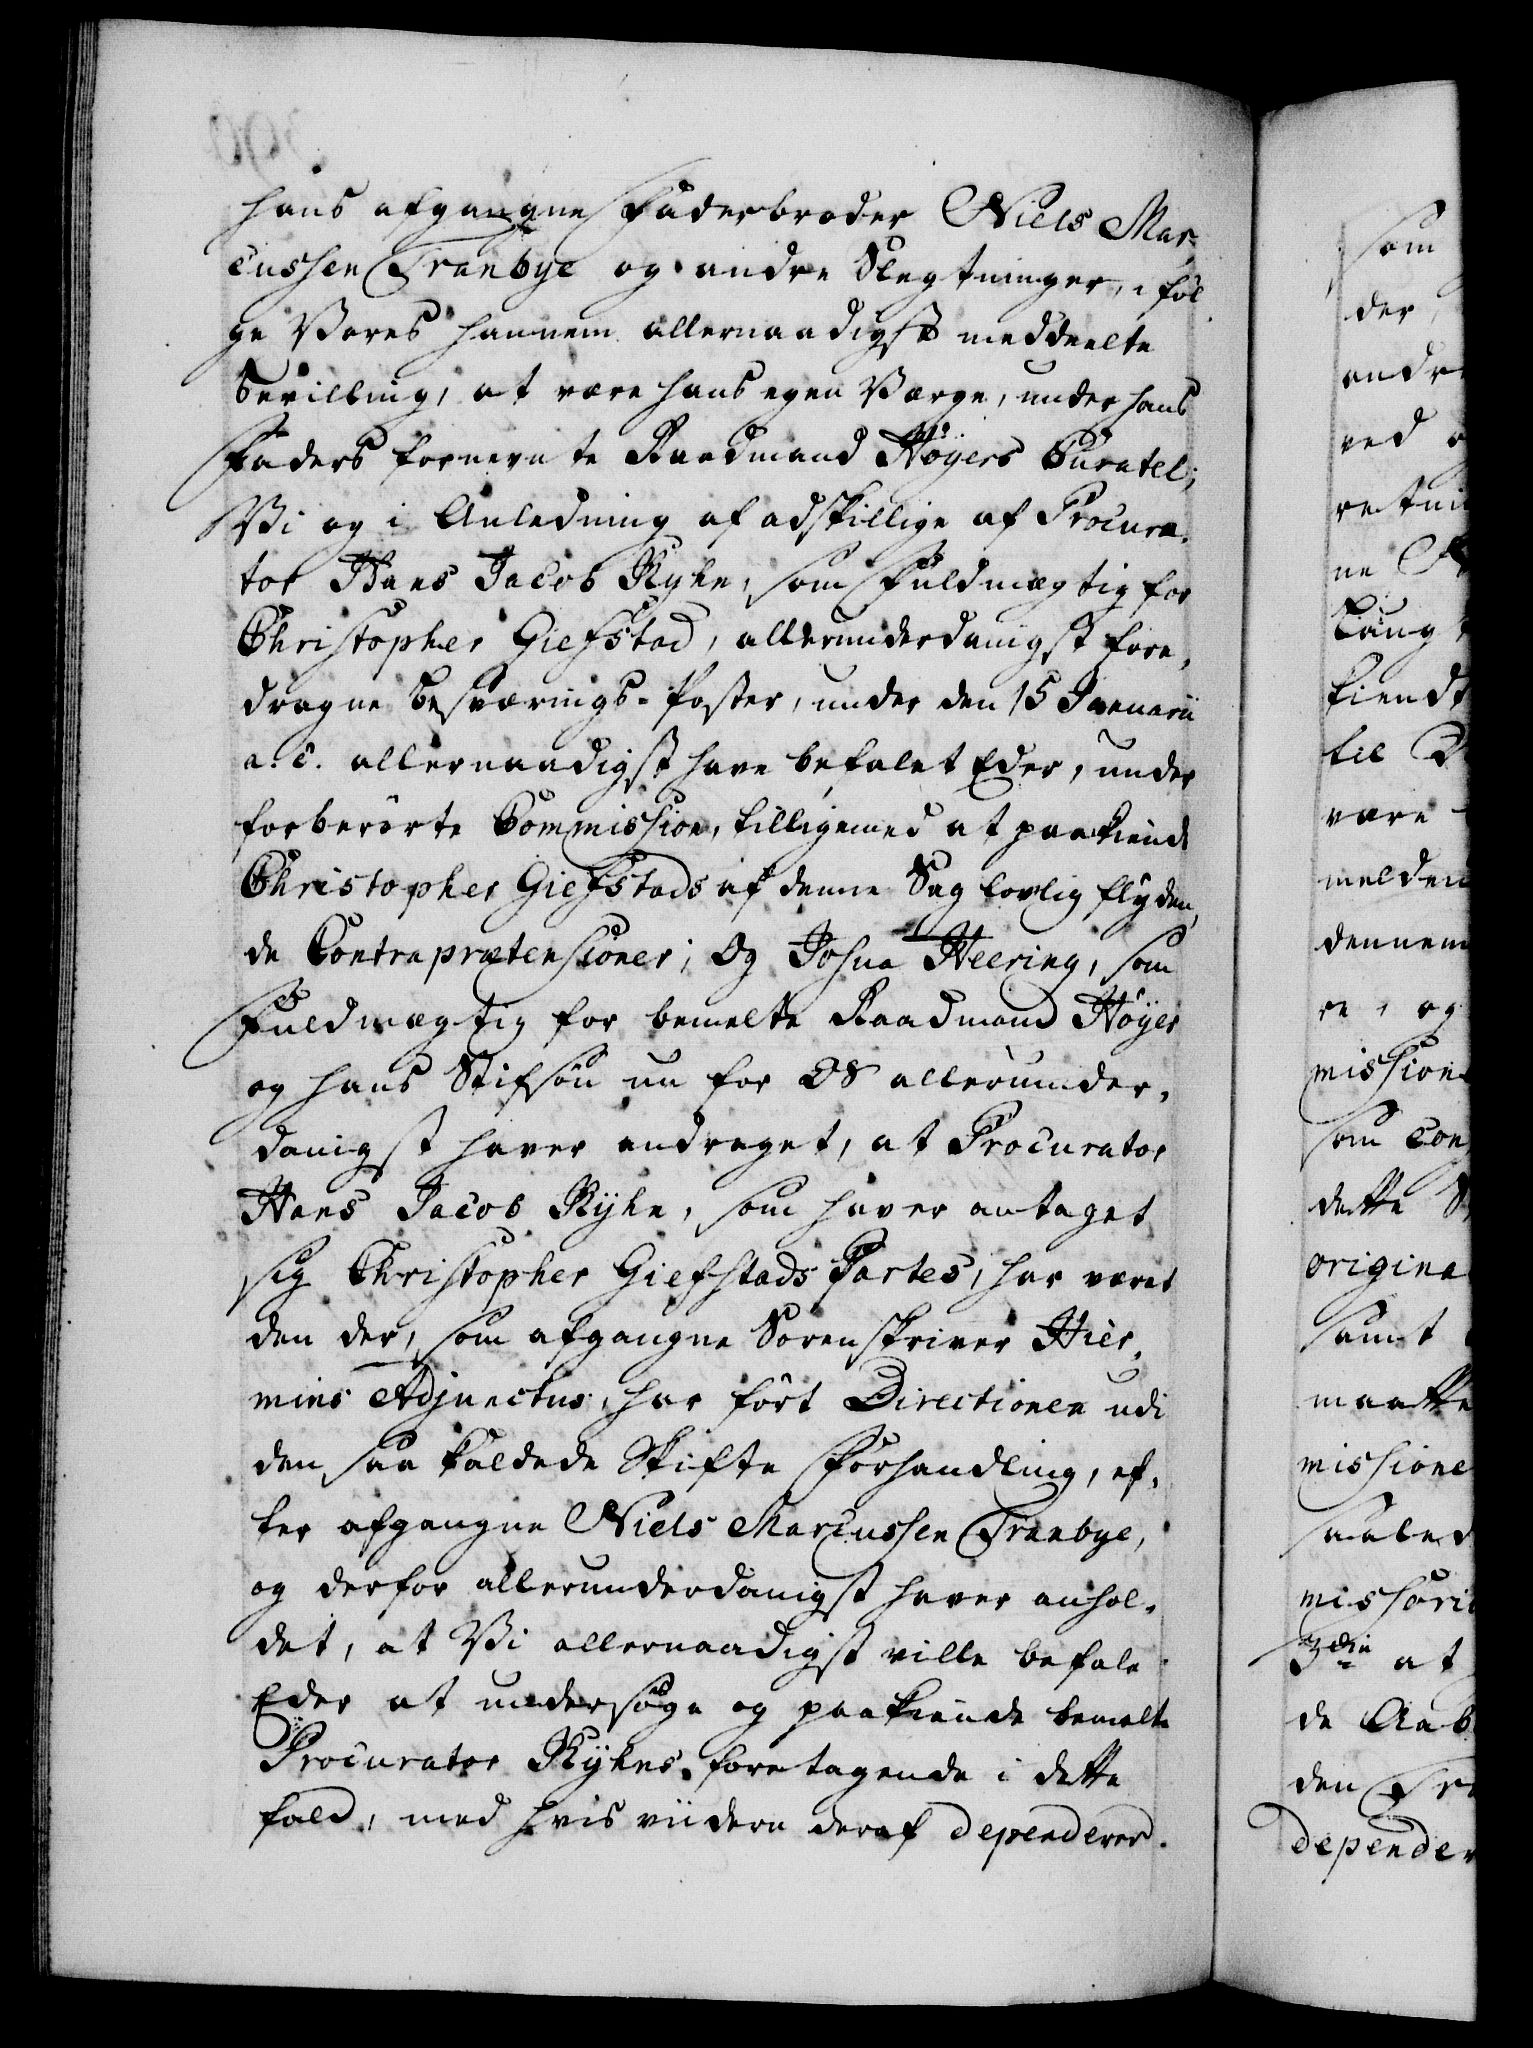 hans afgangne Faderbroder Niels Mar-
cussen Tranbye og andre Slegtninger, i føl
ge Vores hannem allernaadigst meddeelte
bevilling, at være hans egen Værge, under hans
Faders fornevnte Raadmand Höyers Curatel;
Vi og i Anledning af adskillige af Procura-
tor Hans Jacob Ryhn, som Fuldmægtig for
Christopher Giefstad, allerunderdanigst fore-
dragne besværings-Poster, under den 15 Januarii
a. c. allernaadigst have befalet Eder, under
forberörte Commission, tilligemed at paakiende
Christopher Giefstads af denne Sag lovlig flyden-
de Contraprætensioner; Og Josua Heering, som
Fuldmægtig for bemelte Raadmand Höyer
og hans Stifsön nu for OS allerunder-
danigst haver andraget, at Procurator
Hans Jacob Ryhn, som haver antaget
sig Christopher Giefstads Partes, har været
den der, som afgangne Sorenskriver Hier-
mins Adjunctus, har fört Directionen udi
den saa kaldede Skifte Forhandling, ef-
ter afgangne Niels Marcussen Tranbye,
og derfor allerunderdanigst haver anhol-
det, at Vi allernaadigst ville befale
Eder at undersöge og paakiende bemelte
Procurator Ryhns foretagende i dette
fald, med hvis viidere deraf dependerer.
som
der
andre
ved
ne
til
være
melden
dennem
re, og
mission
som Con
dette
origina
samt
maatte
missione
saaled
missori
3die at
de
den Tr
depender